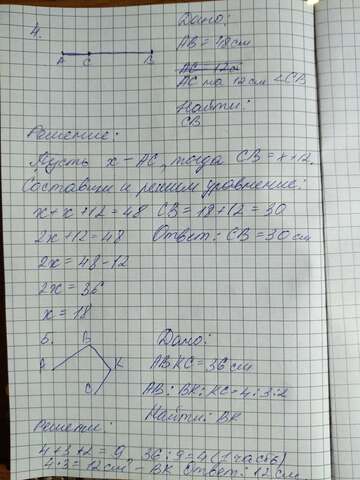 4.
Дано:
A C B
AB = 48 см
AC = 12 с
AC на 12 см < CB
Найти:
CB
Решение:
Пусть x - AC, тогда CB = x + 12.
Составим и решим уравнение:
x + x + 12 = 48 CB = 18 + 12 = 30
2x + 12 = 48 Ответ: CB = 30 см
2x = 48 - 12
2x = 36
x = 18
5.
B
A K
C
Дано:
ABKC = 36 см
AB : BK : KC = 4 : 3 : 2
Найти: BK
Решение:
4 + 3 + 2 = 9 36 : 9 = 4 (1 часть)
4 · 3 = 12 см - BK Ответ: 12 см